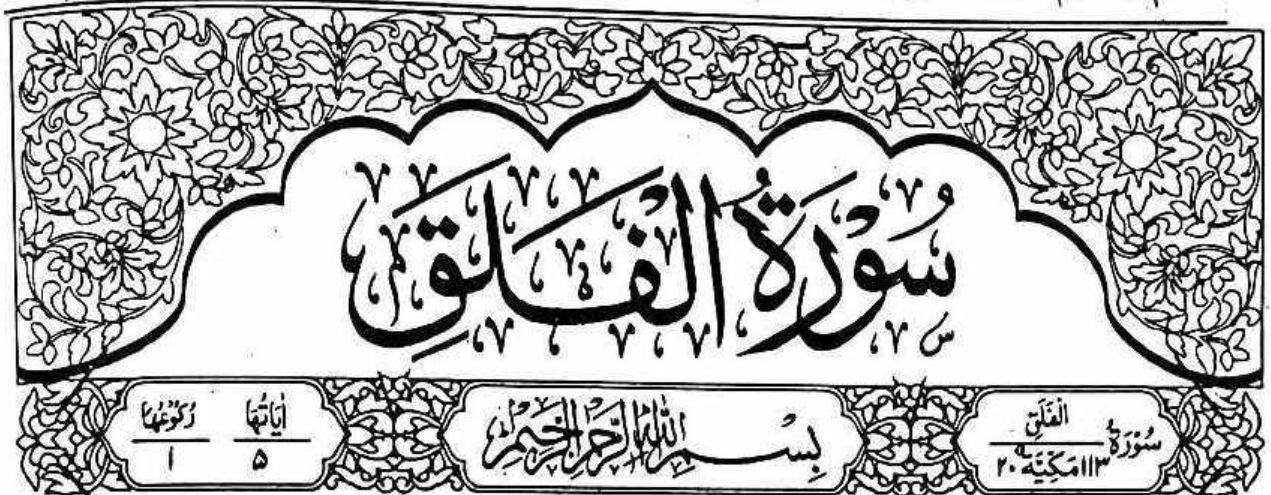 سُوْرَةُ الْفَلَقِ
سُوْرَةُ الْفَلَقِ
١١٣ مَكِّيَّةٌ ٢٠
بِسْمِ اللهِ الرَّحْمٰنِ الرَّحِيْمِ
اٰيَاتُهَا رُكُوْعُهَا
۵ ١